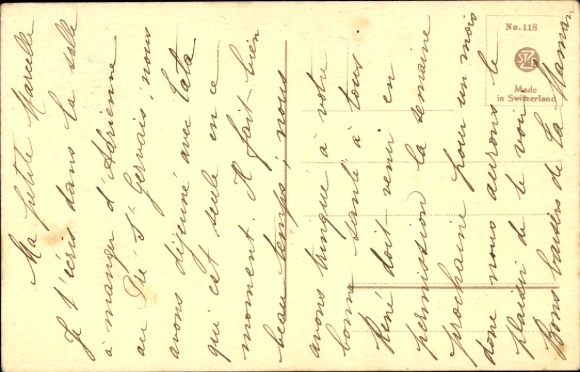 Ma petite Marcelle
Je t'écris dans la salle
à manger d'Adrienne
au Pré St Gervais, nous
avons déjeuné avec Tata
qui est seule en ce
moment. Il fait bien
beau temps; nous
avons trinqué à votre
bonne santé à tous
René doit venir en
permission la semaine
prochaine pour un mois
donc nous aurons le
plaisir de te voir
Bons baisers de ta Maman
No. 118
Made
in Switzerland